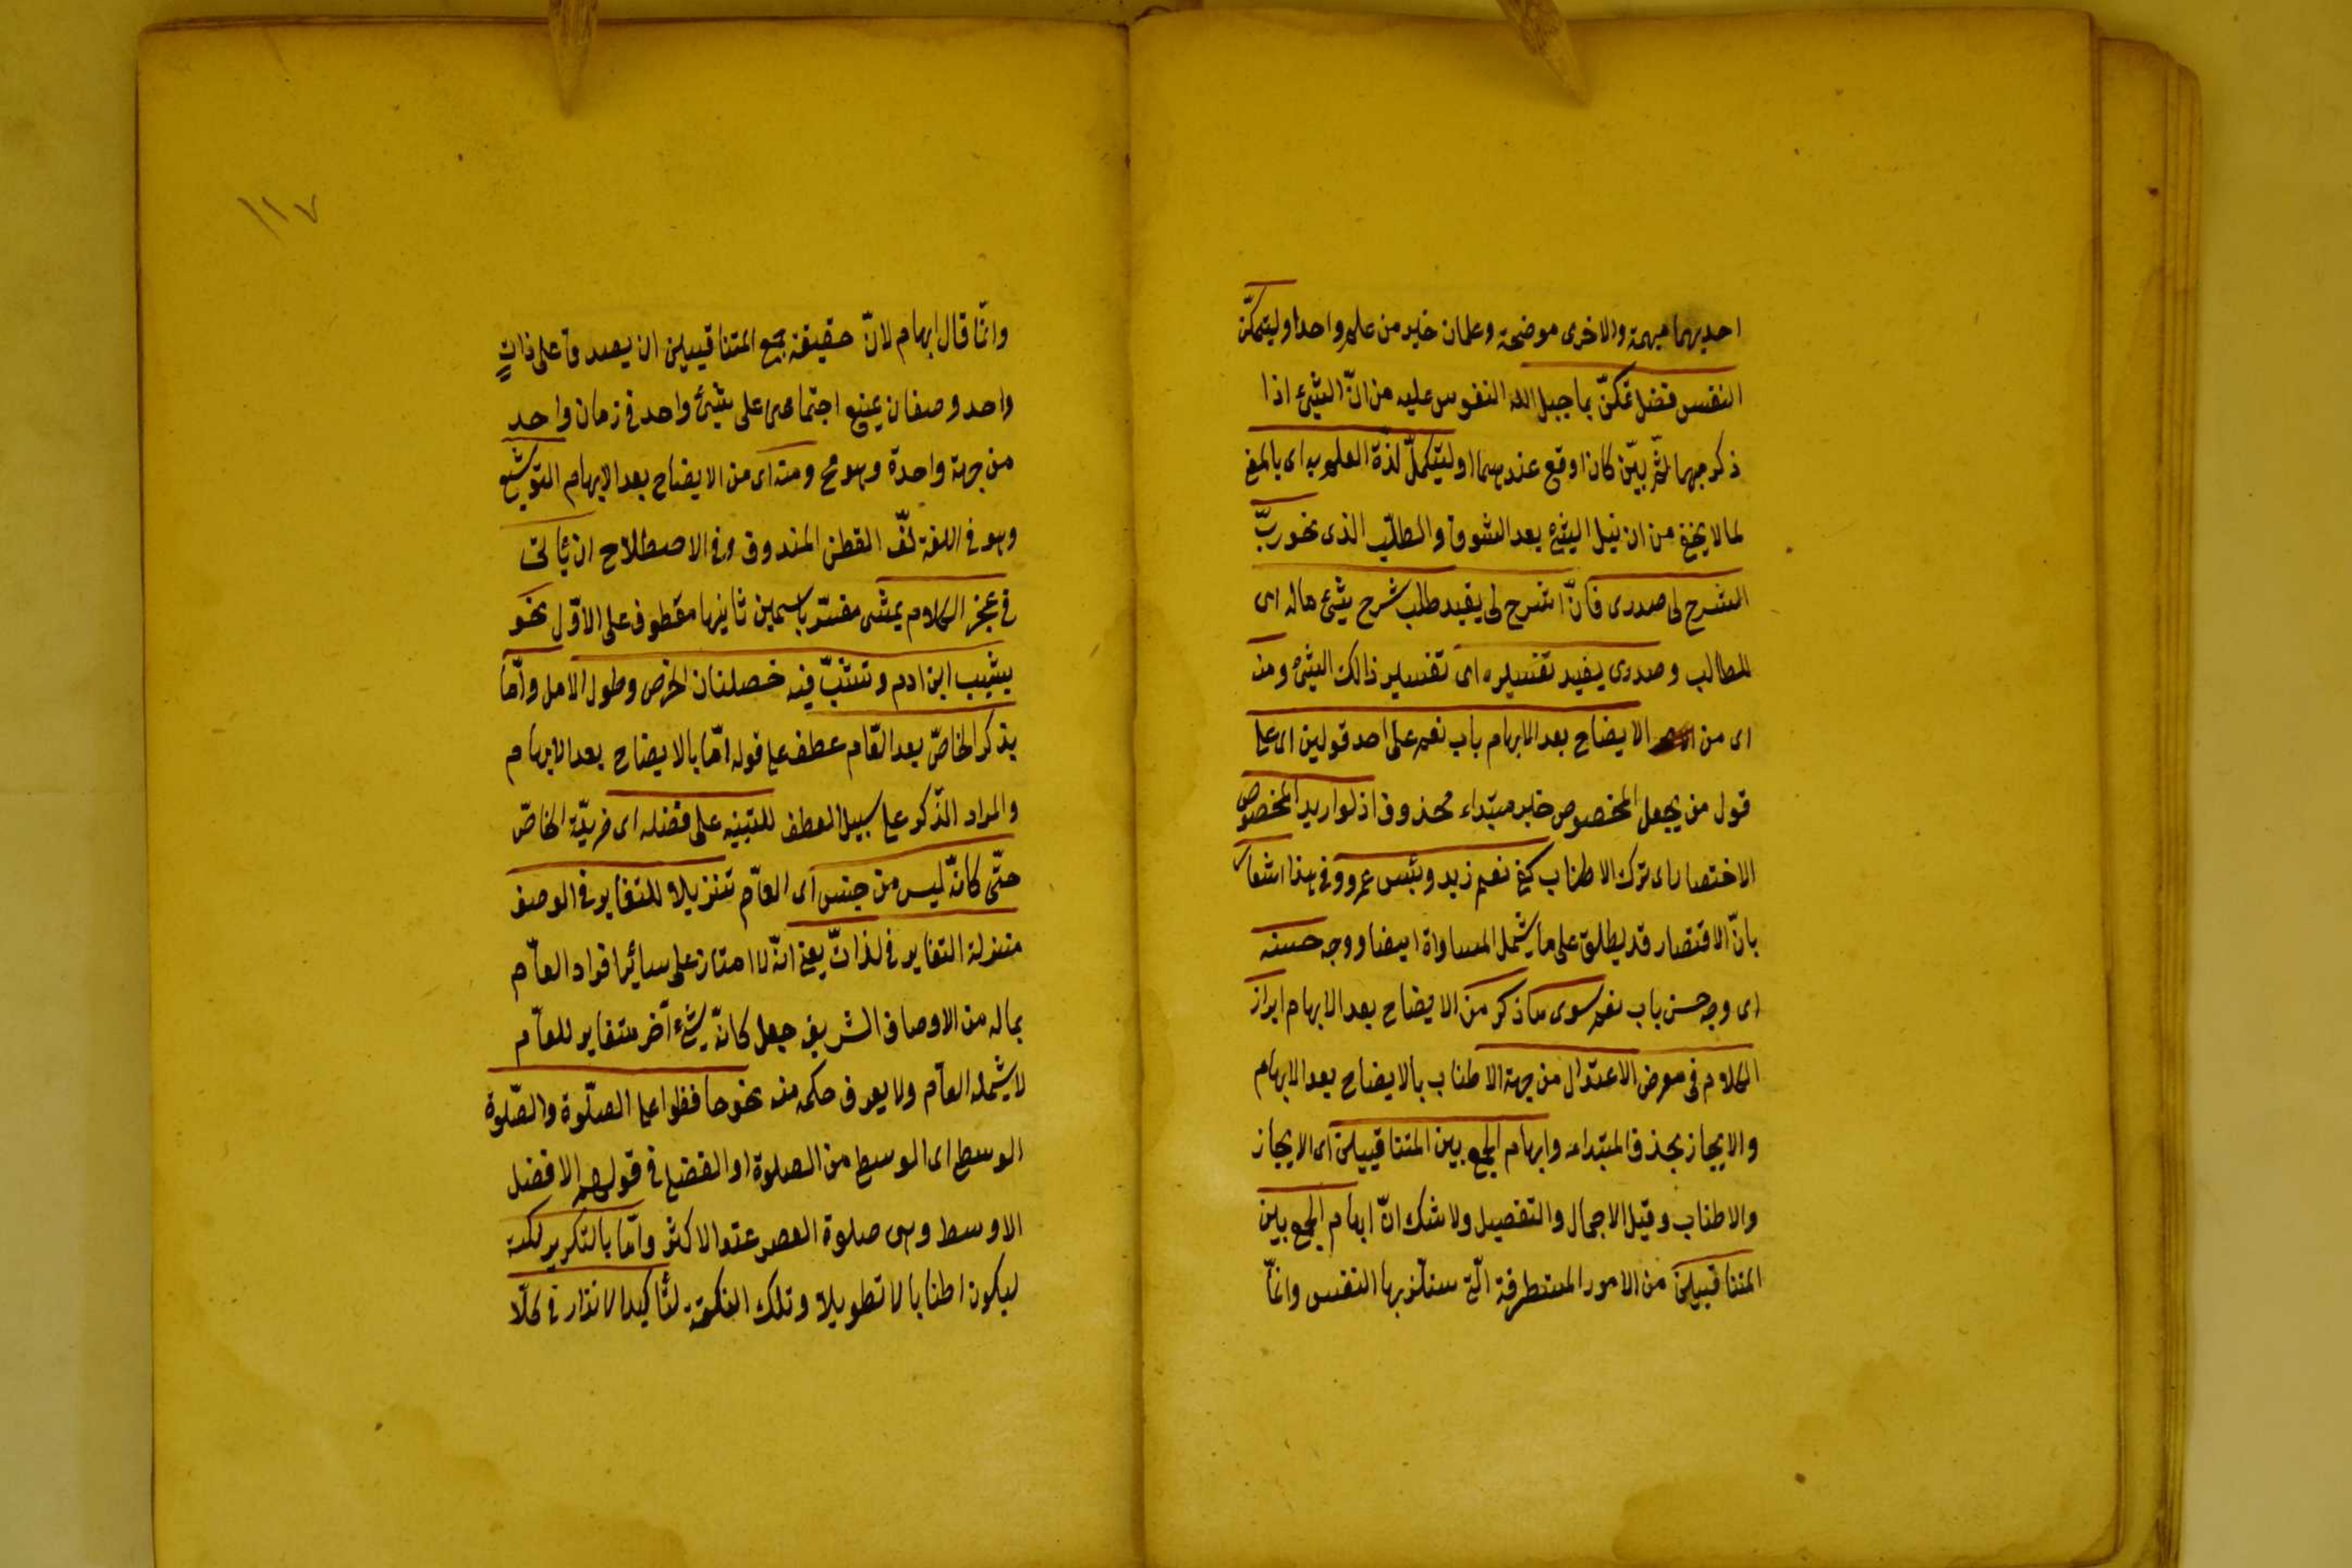 احديهما مبهمة والاخرى موضحة وعلمان خير من علم واحد او ليتمكّن
النفس فضل تمكّن بما جبل الله النفوس عليه من انّ الشئ اذا
ذكر مبهما ثمّ بيّن كان اوقع عندهما او ليتكمل لذّة العلم به اى بالمعنى
لما لا يخفى من ان نيل الشئ بعد الشوق والطلب الذى نحو ربّ
اشرح لى صدرى فانّ اشرح لى يفيد طلب شرح شئ ما له اى
للطالب وصدرى يفيد تفسيره اى تفسير ذالك الشئ ومنه
اى من الايضاح بعد الابهام باب نعم على احد قولين اى على
قول من يجعل المخصوص خبر مبتداء محذوف اذ لو اريد المخصوص
الاختصار اى ترك الاطناب كفى نعم زيد وبئس عمرو وفى هذا اشعار
بانّ الاقتصار قد يطلق على ما يشمل المساواة ايضا ووجه حسنه
اى وجه حسن باب نعم سوى ما ذكر من الايضاح بعد الابهام ابراز
الكلام فى معرض الاعتدال من جهة الاطناب بالايضاح بعد الابهام
والايجاز بحذف المبتداء وابهام الجمع بين المتنافيين اى الايجاز
والاطناب وقيل الاجمال والتفصيل ولا شك انّ ابهام الجمع بين
المتنافيين من الامور المستطرفة الّتى ستلذ بها النفس وانّما
١١٧
وانّما قال ابهام لانّ حقيقة جمع المتنافيين ان يصدق على ذات
واحد وصفان يمتنع اجتماعهما على شئ واحد فى زمان واحد
من جهة واحدة وهو مح ومنه اى من الايضاح بعد الابهام التوشيع
وهو فى اللغة لفّ القطن المندوف وفى الاصطلاح ان يأتى
فى عجز الكلام بمثنى مفسّر باسمين ثانيهما معطوف على الاوّل نحو
يشيب ابن ادم وتشبّ فيه خصلتان الحرص وطول الامل وامّا
بذكر الخاصّ بعد العامّ عطف على قوله امّا بالايضاح بعد الابهام
والمراد الذّكر على سبيل العطف للتنبيه على فضله اى مزيّة الخاصّ
حتّى كانّه ليس من جنسه اى العامّ تنزيلا للتغاير فى الوصف
منزلة التغاير فى لذاتّ يعنى انّه لا امتاز على سائر افراد العآم
بماله من الاوصاف الشريفة جعل كانّه شئ آخر متغاير للعآم
لا يشمله العآم ولا يعرف حكمه منه نحو حافظوا على الصلّوة والصّلوة
الوسطى اى الوسطى من الصلوة او الفضلى فى قولهم الافضل
الاوسط وهى صلوة العصر عند الاكثر وامّا بالتكرير لنكتة
ليكون اطنابا لا تطويلا وتلك النكتة لتأكيد الانذار فى كلّا